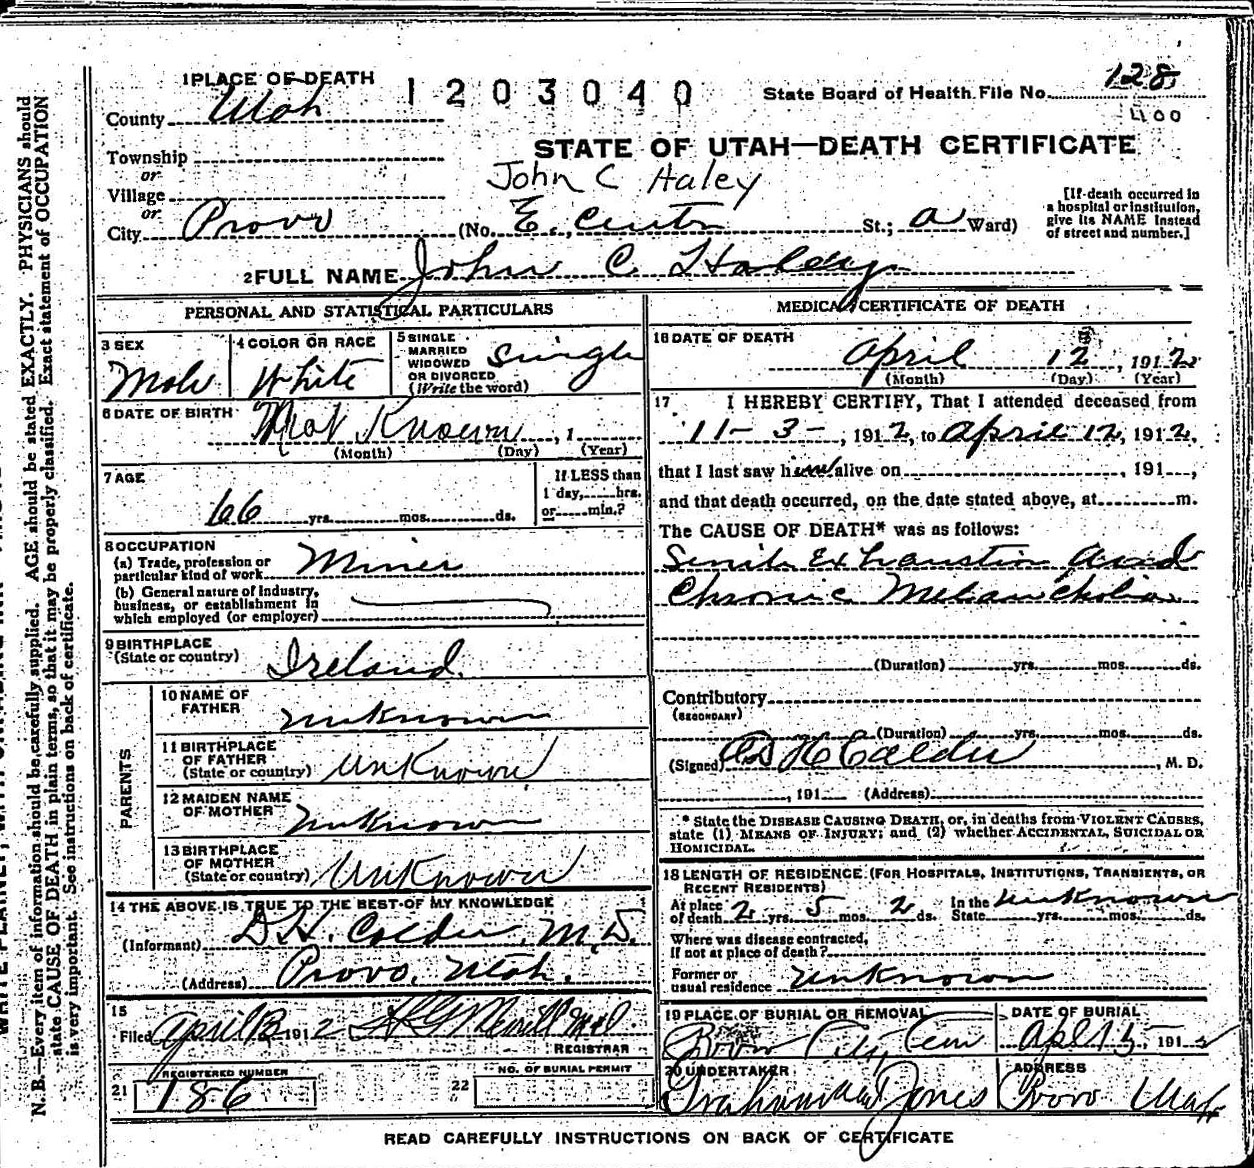 1 PLACE OF DEATH
1203040
State Board of Health File No. 128
400
County Utah
STATE OF UTAH—DEATH CERTIFICATE
Township
or
John C Haley
Village
or
City Provo (No. E. Center St.; a Ward)
[If death occurred in
a hospital or institution,
give its NAME instead
of street and number.]
2 FULL NAME John C. Haley
PERSONAL AND STATISTICAL PARTICULARS
3 SEX
Male
4 COLOR OR RACE
White
5 SINGLE
MARRIED
WIDOWED
OR DIVORCED
(Write the word)
Single
6 DATE OF BIRTH
Not Known, 1
(Month) (Day) (Year)
7 AGE
66 yrs. mos. ds.
If LESS than
1 day, hrs.
or min.?
8 OCCUPATION
(a) Trade, profession or
particular kind of work Miner
(b) General nature of industry,
business, or establishment in
which employed (or employer)
9 BIRTHPLACE
(State or country) Ireland.
PARENTS
10 NAME OF
FATHER
unknown
11 BIRTHPLACE
OF FATHER
(State or country) unknown
12 MAIDEN NAME
OF MOTHER
unknown
13 BIRTHPLACE
OF MOTHER
(State or country) unknown
14 THE ABOVE IS TRUE TO THE BEST OF MY KNOWLEDGE
(Informant) D.H. Calder, M.D.
(Address) Provo, Utah.
15
Filed April 13 1912 Merrill M.D.
REGISTRAR
REGISTERED NUMBER
21 186
22 NO. OF BURIAL PERMIT
MEDICAL CERTIFICATE OF DEATH
16 DATE OF DEATH
April 12, 1912
(Month) (Day) (Year)
17 I HEREBY CERTIFY, That I attended deceased from
11-3-, 1912, to April 12, 1912,
that I last saw him alive on , 191 ,
and that death occurred, on the date stated above, at m.
The CAUSE OF DEATH* was as follows:
Senile Exhaustion and
Chronic Melancholia
(Duration) yrs. mos. ds.
Contributory
(SECONDARY)
(Duration) yrs. mos. ds.
(Signed) D H Calder, M. D.
, 191 (Address)
* State the DISEASE CAUSING DEATH, or, in deaths from VIOLENT CAUSES,
state (1) MEANS OF INJURY; and (2) whether ACCIDENTAL, SUICIDAL OR
HOMICIDAL.
18 LENGTH OF RESIDENCE (FOR HOSPITALS, INSTITUTIONS, TRANSIENTS, OR
RECENT RESIDENTS)
At place
of death 2 yrs. 5 mos. 2 ds. In the
State unknown yrs. mos. ds.
Where was disease contracted,
If not at place of death?
Former or
usual residence unknown
19 PLACE OF BURIAL OR REMOVAL
Provo City Cem
DATE OF BURIAL
Apl 15, 1912
20 UNDERTAKER
Graham and Jones
ADDRESS
Provo Utah
READ CAREFULLY INSTRUCTIONS ON BACK OF CERTIFICATE
N. B.—Every item of information should be carefully supplied. AGE should be stated EXACTLY. PHYSICIANS should
state CAUSE OF DEATH in plain terms, so that it may be properly classified. Exact statement of OCCUPATION
is very important. See instructions on back of certificate.